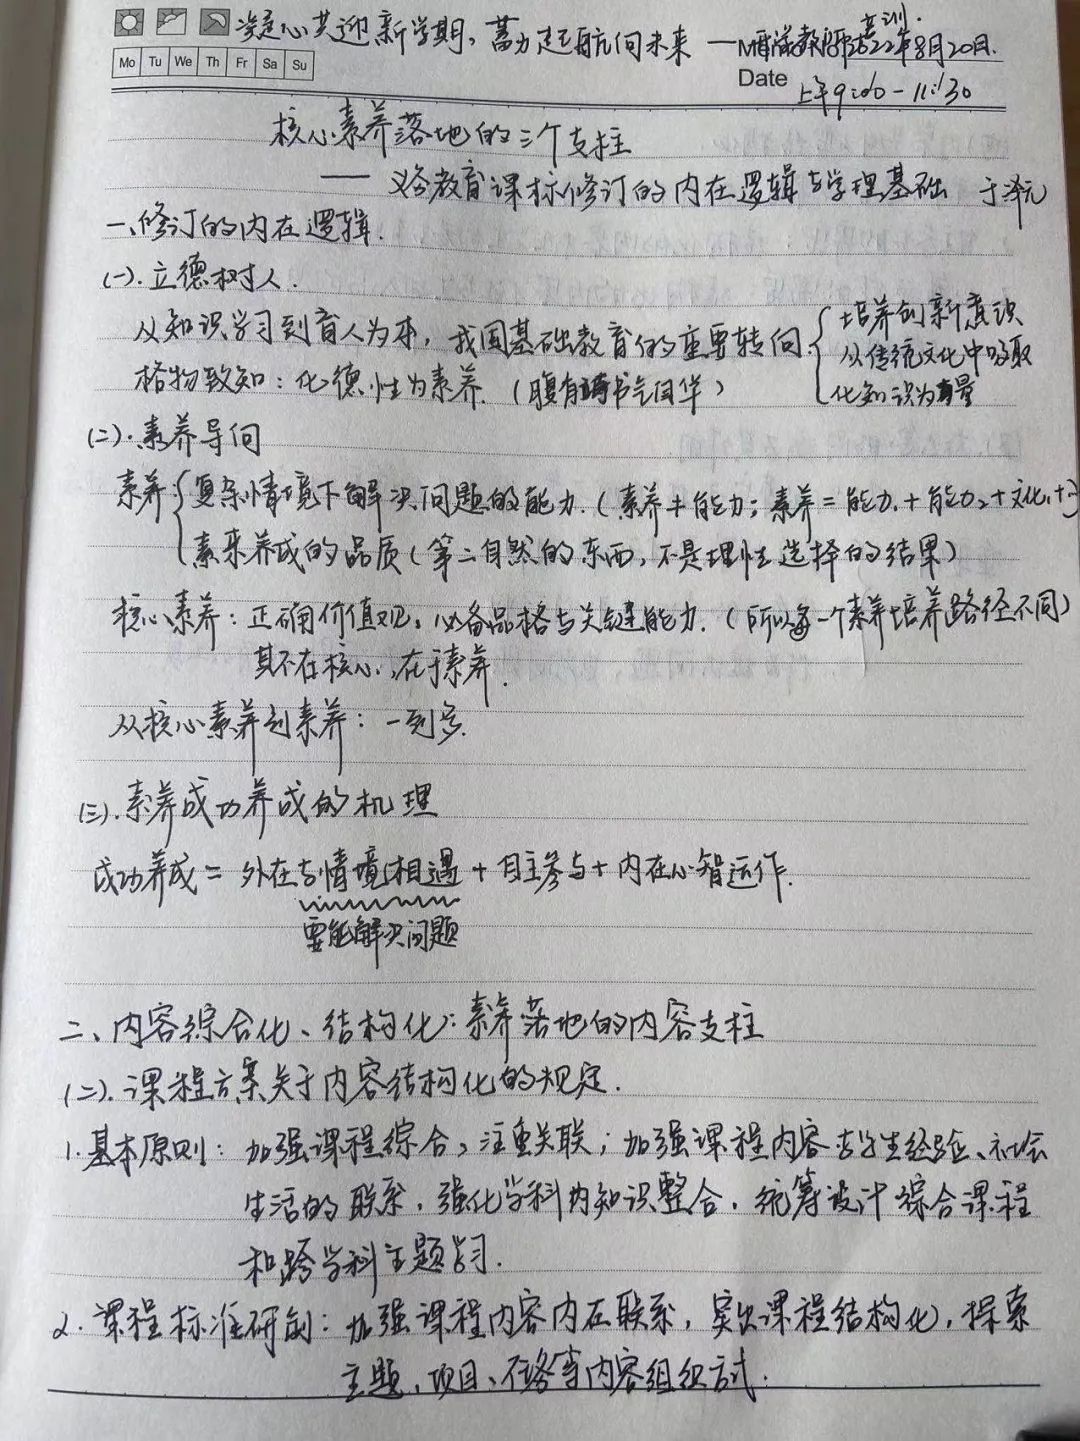 凝心共迎新学期，蓄力起航向未来——教师培训.
2022年8月20日.
Mo Tu We Th Fr Sa Su
Date 上午9:00-11:30
核心素养落地的三个支柱
——义务教育课标修订的内在逻辑与学理基础 于泽元
一、修订的内在逻辑.
(一).立德树人.
从知识学习到育人为本，我国基础教育的重要转向.{培养创新意识
从传统文化中吸取
化知识为力量
格物致知：化德性为素养.（腹有诗书气自华）
(二).素养导向
素养{复杂情境下解决问题的能力.（素养≠能力；素养=能力₁+能力₂+文化₁+…}
素来养成的品质（第二自然的东西，不是理性选择的结果）
核心素养：正确价值观，必备品格与关键能力.（所以每一个素养培养路径不同）
其不在核心，在于素养.
从核心素养到素养：一到多.
(三).素养成功养成的机理
成功养成=外在与情境相遇+自主参与+内在心智运作.
要能解决问题
二、内容综合化、结构化：素养落地的内容支柱
(二).课程方案关于内容结构化的规定.
1.基本原则：加强课程综合，注重关联；加强课程内容与学生经验、社会
生活的联系，强化学科内知识整合，统筹设计综合课程
和跨学科主题学习.
2.课程标准研制：加强课程内容内在联系，突出课程结构化，探索
主题、项目、任务等内容组织方式.